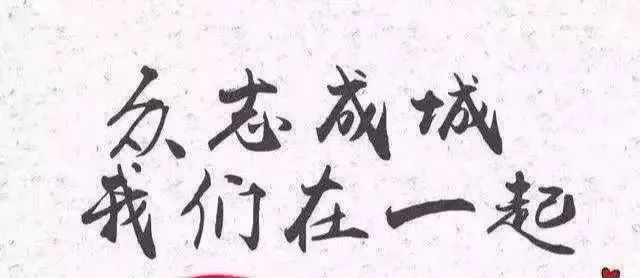 众志成城
我们在一起